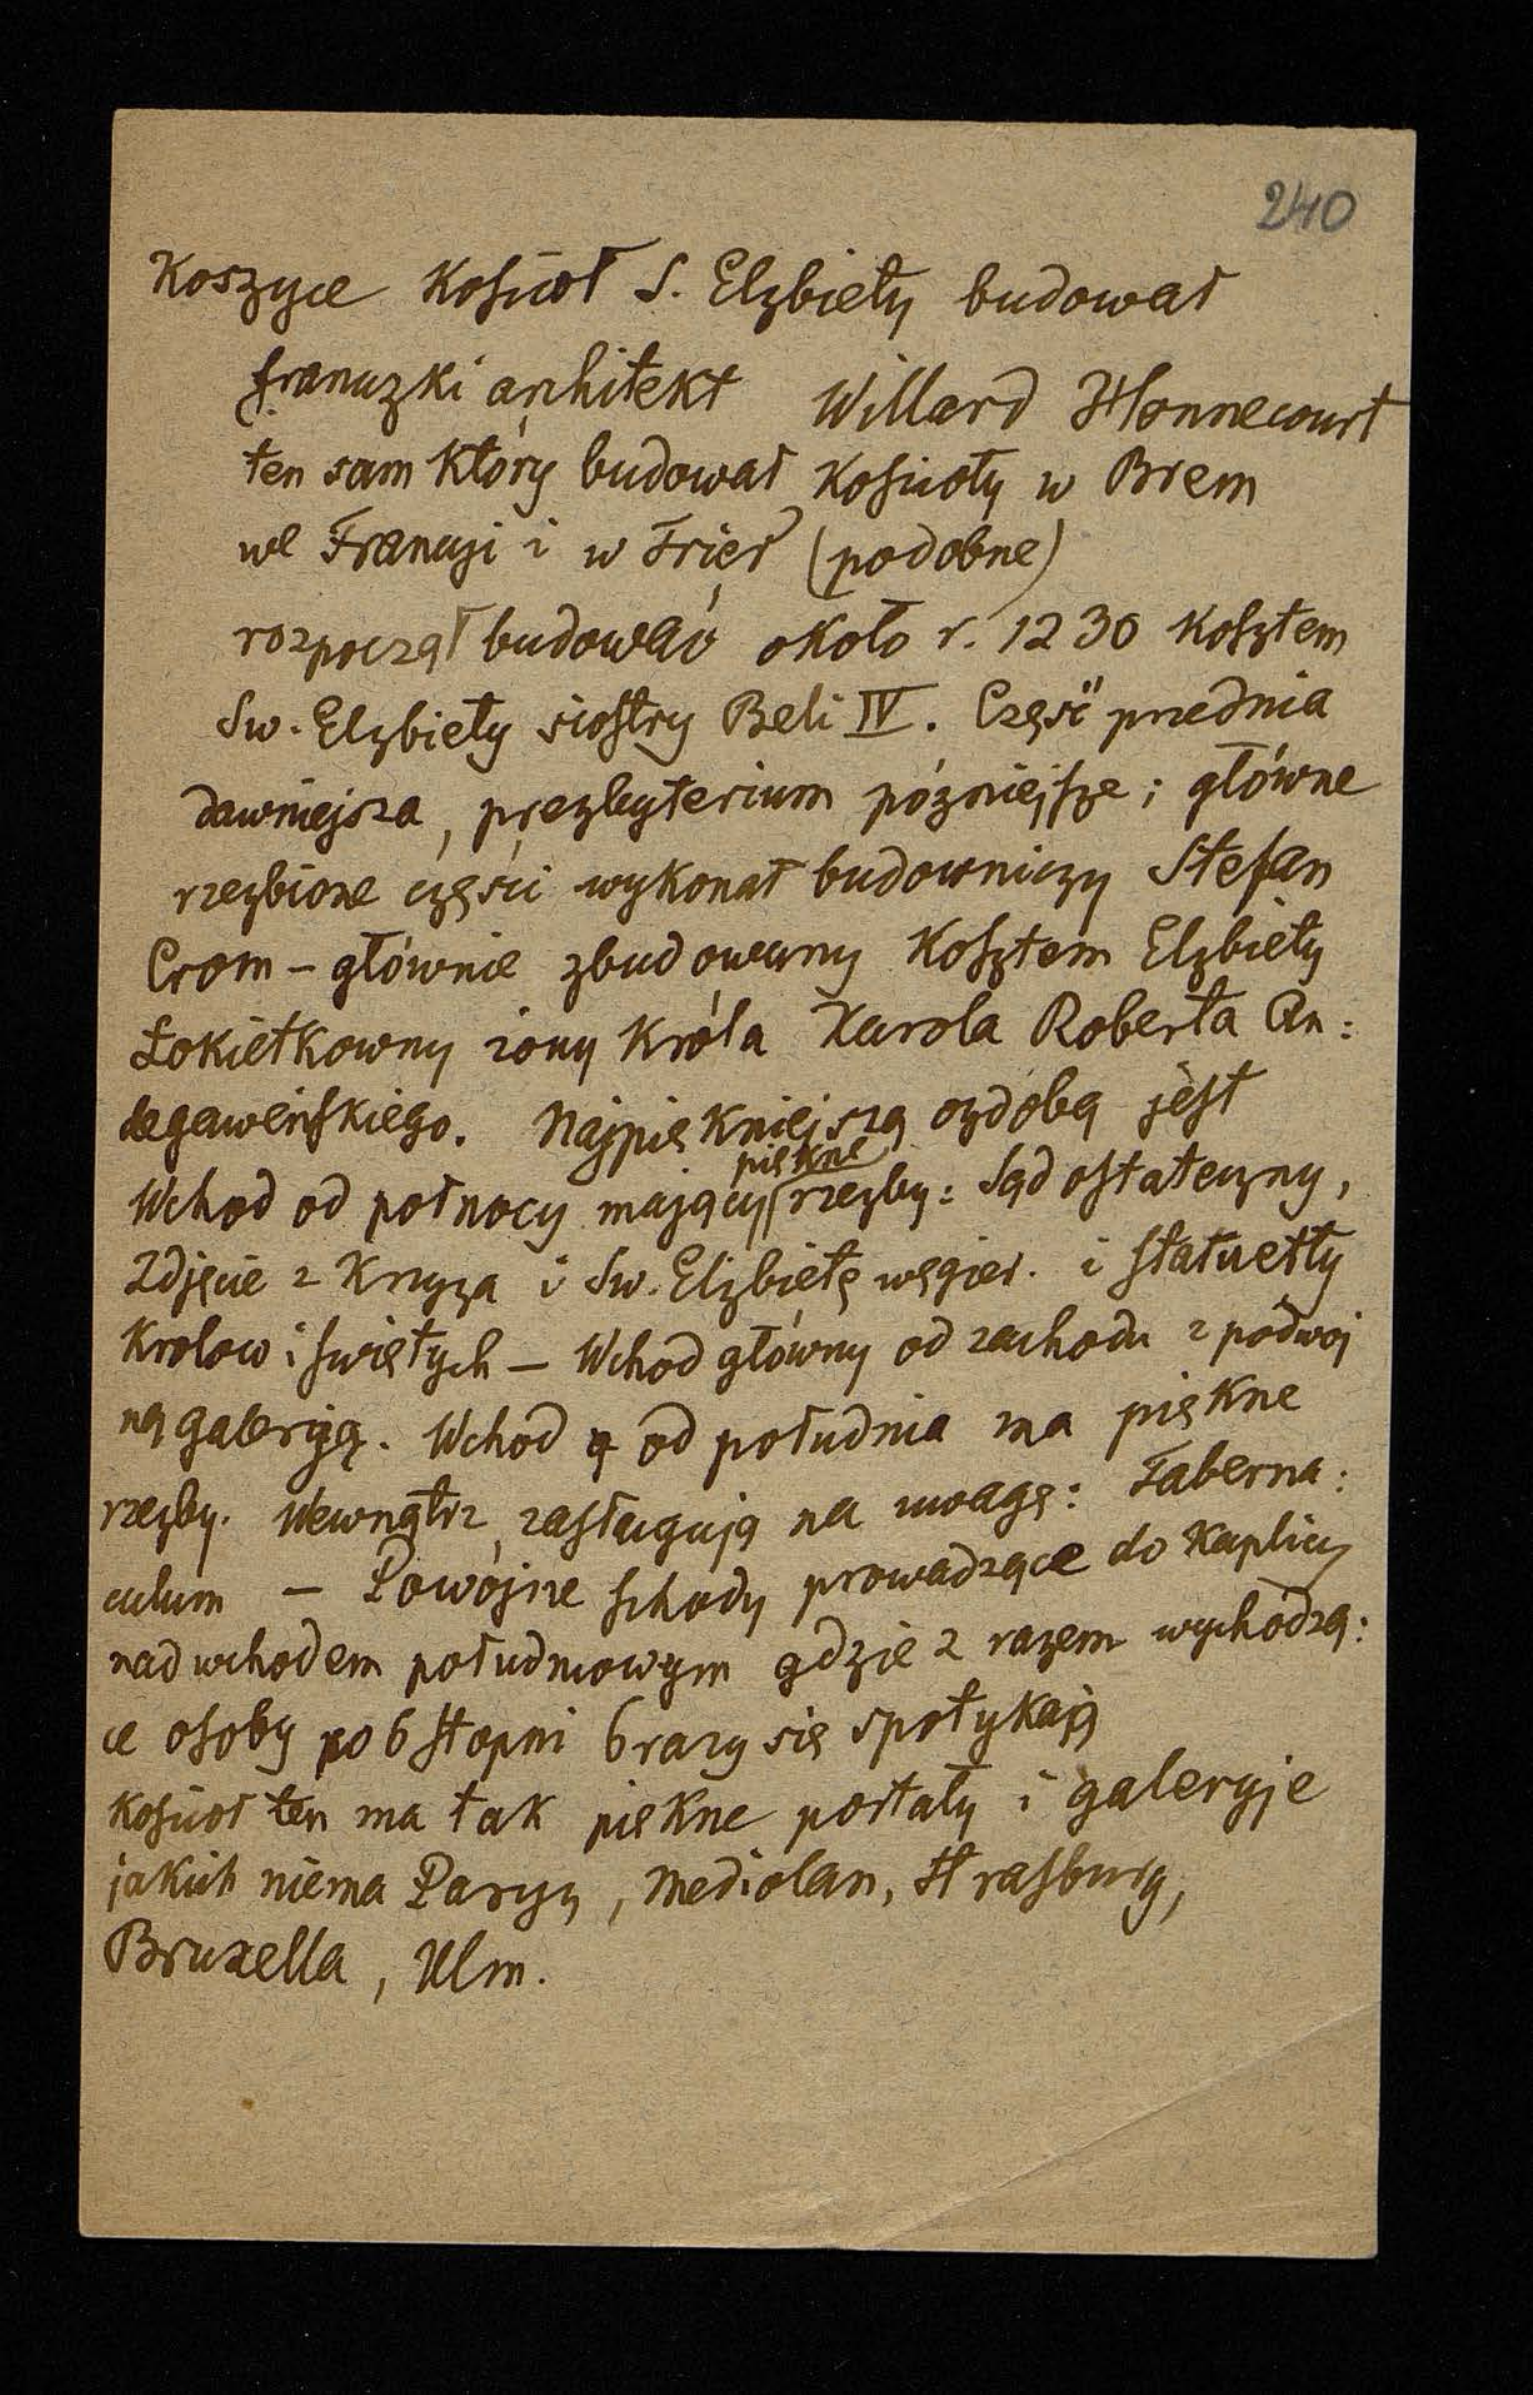 240
Koszyce Koscioł S. Elzbiety budował
francuzki architekt Willard Honnecourt
ten sam Który budował Kościoły w Brem
we Francyi i w Trier (podobne)
rozpoczął budować około r. 1230 Kosztem
Sw. Elzbiety siostry Beli IV. Część przednia
dawniejsza, prezbyterium pózniejsze; główne
rzezbione części wykonał budowniczy Stefan
Crom - głównie zbudowany Kosztem Elzbiety
Łokietkowny żony Króla Karola Roberta An:
degaweńskiego. Najpiękniejszą ozdobą jest
Wchod od połnocy mający piękne rzezby: Sąd ostateczny,
Zdjęcie z Krzyza i Sw. Elzbietę węgier. i statuetty
Krolow i świętych - Wchod główny od zachodu z podwoj
ną galeryją. Wchod od południa ma piękne
rzezby. Wewnątrz zasługują na uwagę: Taberna:
culum - Podwójne schody prowadzące do Kaplicy
nad wchodem południowym gdzie 2 razem wychodzą:
ce osoby po 6 stopni 6 razy się spotykają
Kościoł ten ma tak piękne portały i galeryje
jakich niema Paryz, Mediolan, Strasburg,
Bruxella, Ulm.